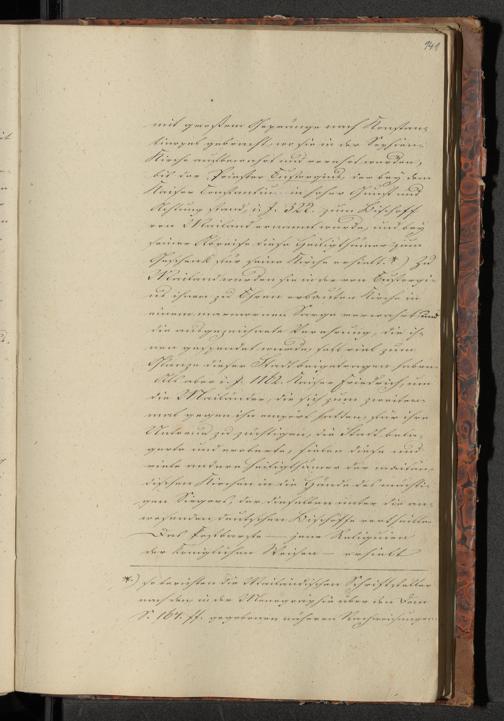 941
mit großem Gepränge nach Konstan-
tinopel gebracht, wo sie in der Sophien-
Kirche aufbewahrt und verehrt wurden,
bis der Priester Eustorgius, der bey dem
Kaiser Constantin in hoher Gunst und
Achtung stand, i. J. 322. zum Bischoff
von Mailand ernannt wurde, und bey
seiner Abreise diese Heiligthümer zum
Geschenk für seine Kirche erhielt.*) Zu
Mailand wurden sie in der von Eustorgi-
us ihnen zu Ehren erbauten Kirche in
einem marmornen Sarge verwahrt und
die ausgezeichnete Verehrung, die ih-
nen gespendet wurde, soll viel zum
Glanze dieser Stadt beigetragen haben.
Als aber i. J. 1162. Kaiser Friedrich, um
die Mailänder, die sich zum zweiten-
mal gegen ihn empört hatten, für ihre
Untreue zu züchtigen, die Stadt bela-
gerte und eroberte, fielen diese und
viele andere Heiligthümer der mailän-
dischen Kirchen in die Hände des mächti-
gen Siegers, der dieselben unter die an-
wesenden deutschen Bischoffe vertheilte.
Das Kostbarste — jene Reliquien
der königlichen Weisen — erhielt
*) So berichten die Mailändischen Schriftsteller
nach den in der Monographie über den Dom
S. 164. ff. gegebenen näheren Nachweisungen.